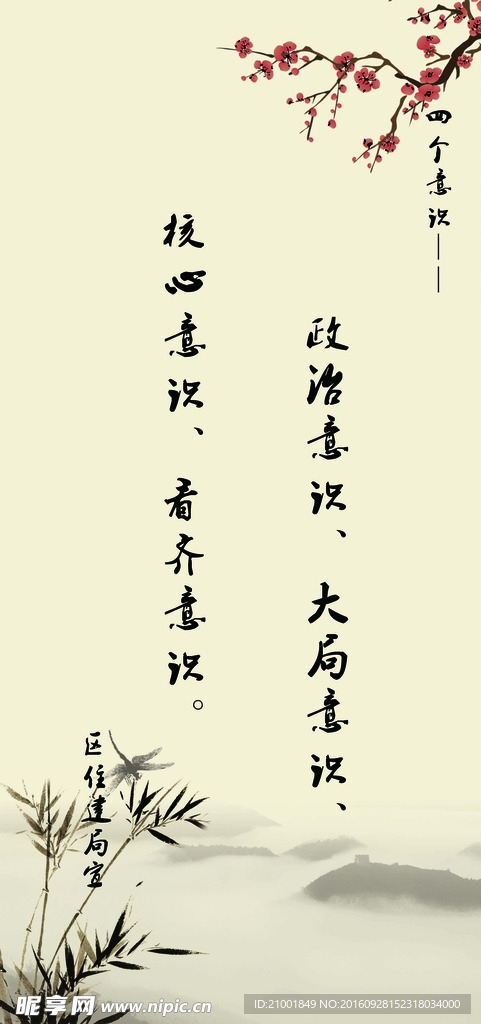 四个意识——
政治意识、大局意识、
核心意识、看齐意识。
区住建局宣
昵享网 www.nipic.cn
ID:21001849 NO:20160928152318034000